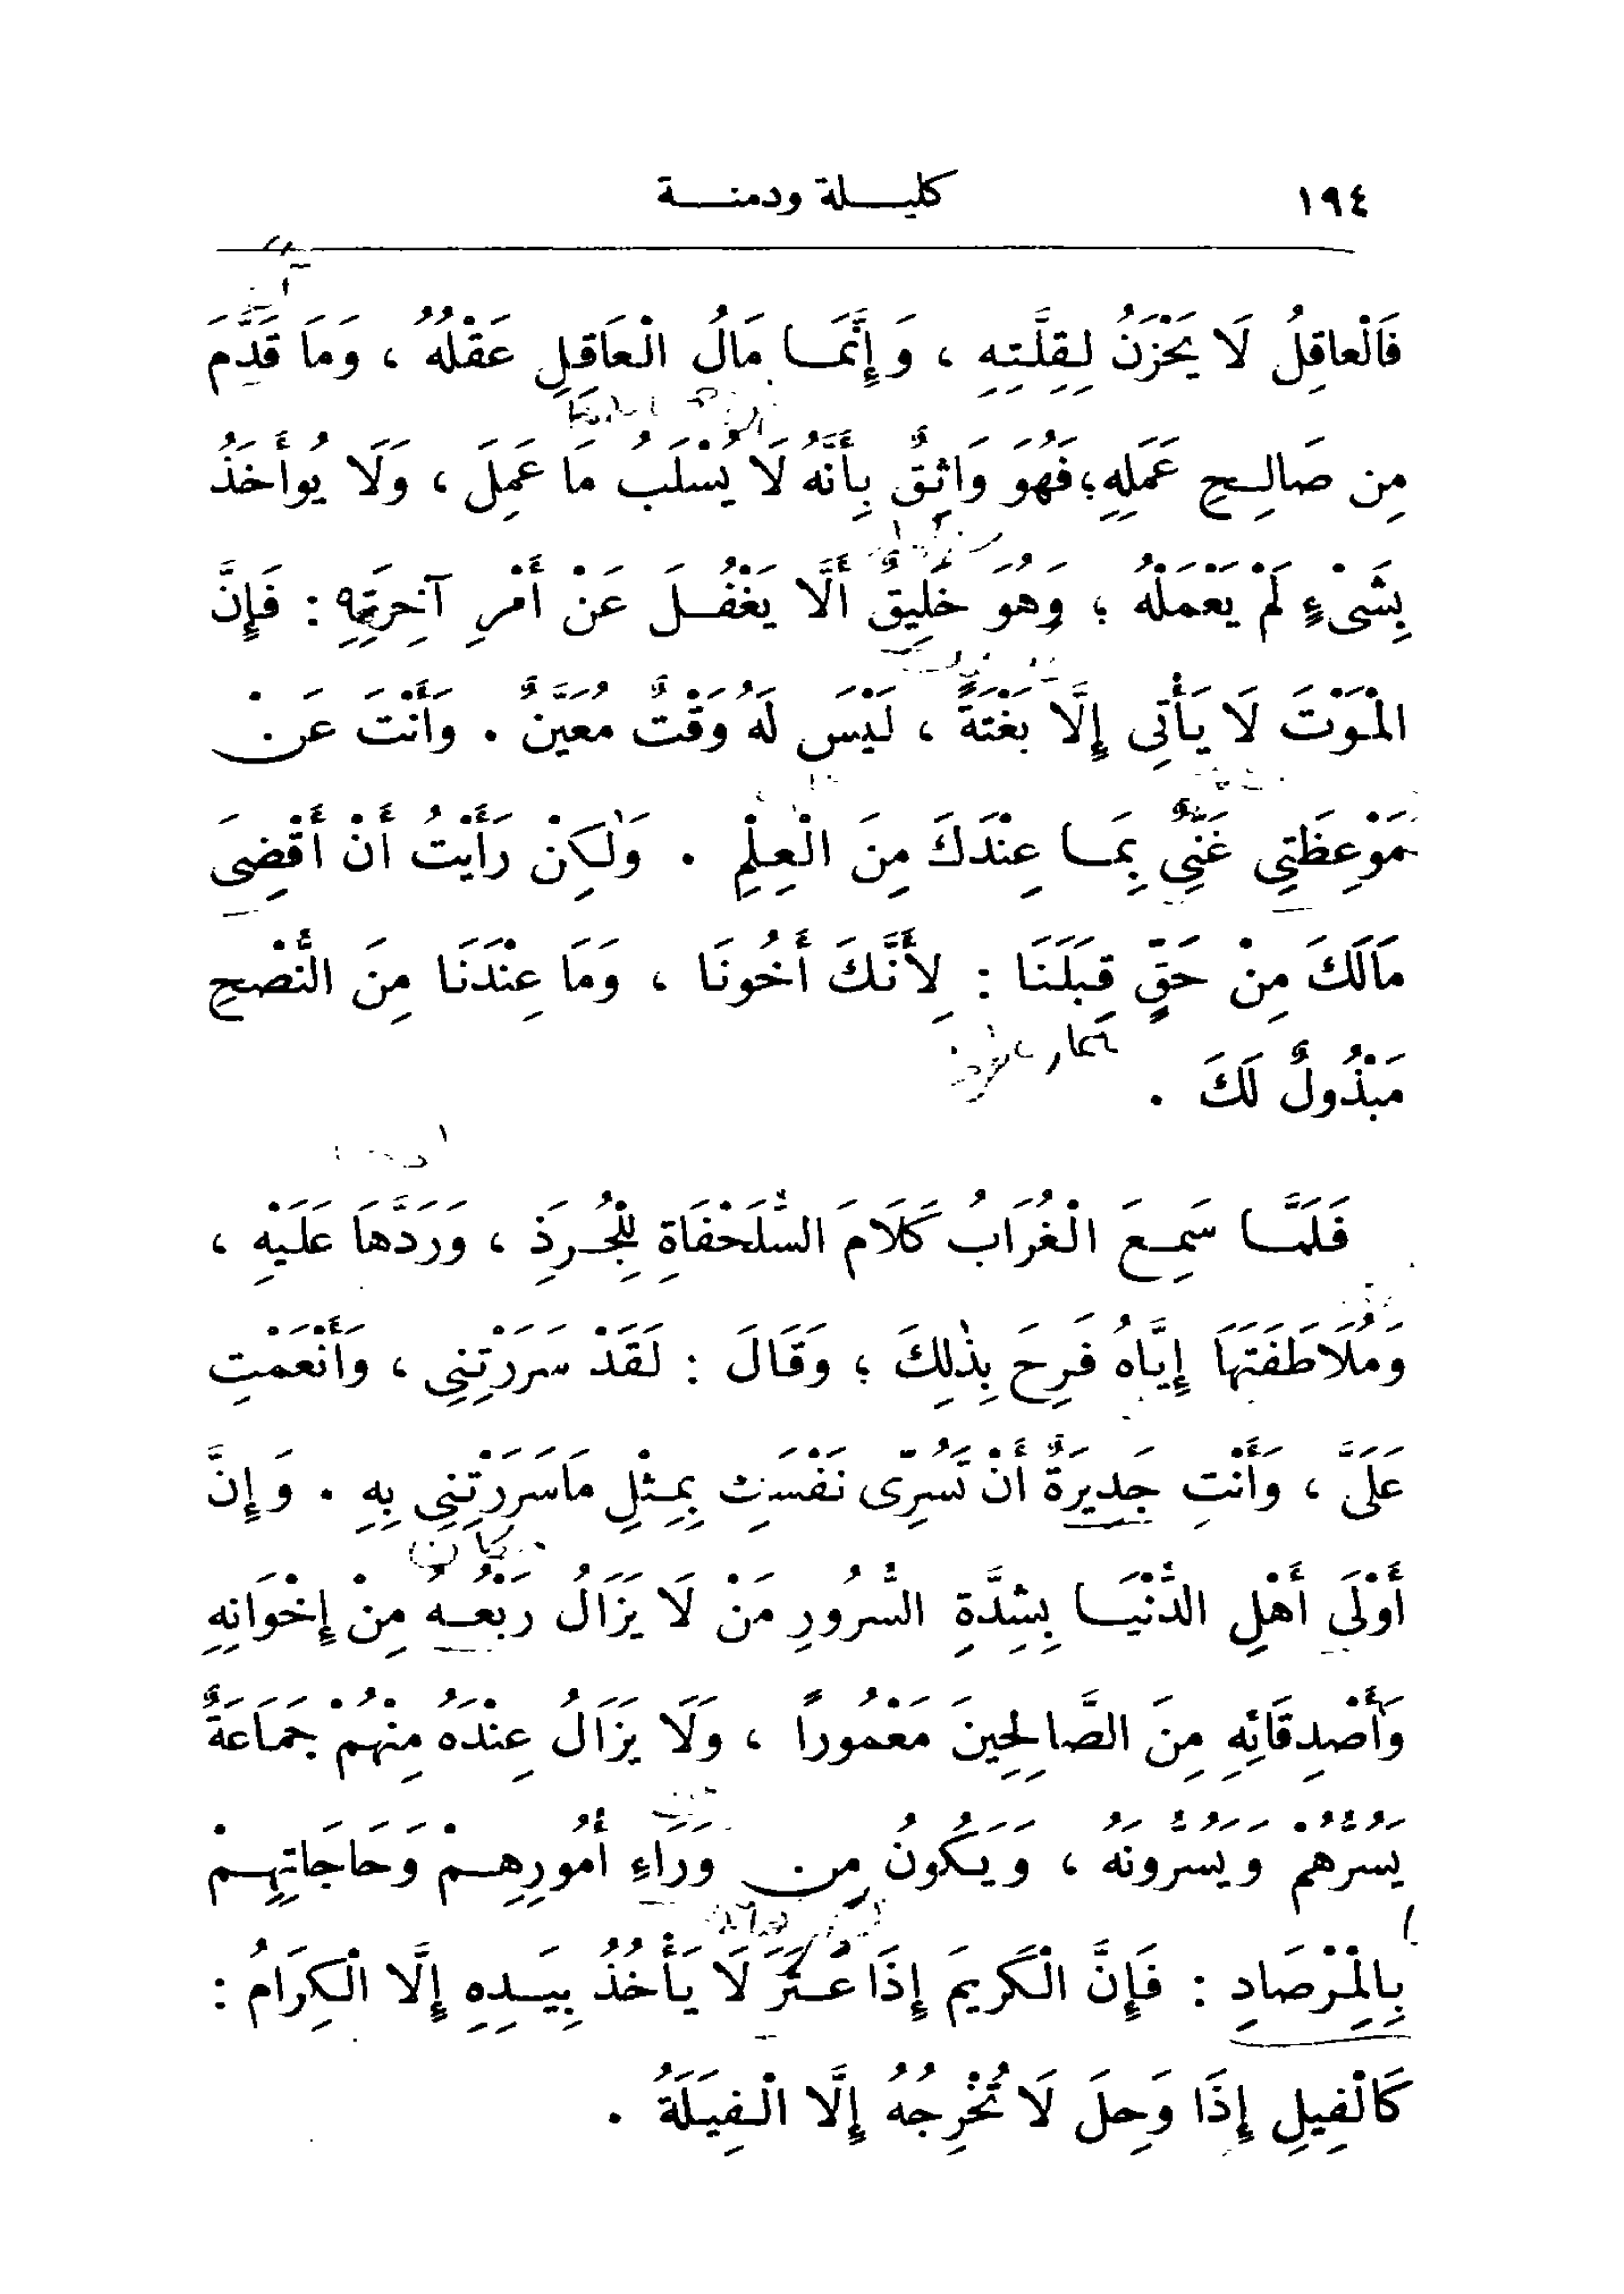 ١٩٤ كليلة ودمنة
فَالْعاقِلُ لَا يَحْزَنُ لِقِلَّتِهِ ، وَإِنَّمَا مَالُ الْعَاقِلِ عَقْلُهُ ، وَمَا قَدَّمَ
مِن صَالِحِ عَمَلِهِ؛ فَهُوَ وَاثِقٌ بِأَنَّهُ لَا يُسْلَبُ مَا عَمِلَ ، وَلَا يُوأَخَذُ
بِشَىْءٍ لَمْ يَعْمَلْهُ ؛ وَهُوَ خَلِيقٌ أَلَّا يَغْفُلَ عَنْ أَمْرِ آخِرَتِهِ : فَإِنَّ
الْمَوْتَ لَا يَأْتِى إِلَّا بَغْتَةً ، لَيْسَ لَهُ وَقْتٌ مُعَيَّنٌ . وَأَنْتَ عَنْ
مَوْعِظَتِى غَنِىٌّ بِمَا عِنْدَكَ مِنَ الْعِلْمِ . وَلٰكِنْ رَأَيْتُ أَنْ أَقْضِىَ
مَالَكَ مِنْ حَقٍّ قِبَلَنَا : لِأَنَّكَ أَخُونَا ، وَمَا عِنْدَنَا مِنَ النُّصْحِ
مَبْذُولٌ لَكَ .
فَلَمَّا سَمِعَ الْغُرَابُ كَلَامَ السُّلَحْفَاةِ لِلْجُرَذِ ، وَرَدَّهَا عَلَيْهِ ،
وَمُلَاطَفَتَهَا إِيَّاهُ فَرِحَ بِذٰلِكَ ؛ وَقَالَ : لَقَدْ سَرَرْتِنِى ، وَأَنْعَمْتِ
عَلَىَّ ، وَأَنْتِ جَدِيرَةٌ أَنْ تَسُرِّى نَفْسَكِ بِمِثْلِ مَاسَرَرْتِنِى بِهِ . وَإِنَّ
أَوْلَى أَهْلِ الدُّنْيَا بِشِدَّةِ السُّرُورِ مَنْ لَا يَزَالُ رَبْعُهُ مِنْ إِخْوَانِهِ
وَأَصْدِقَائِهِ مِنَ الصَّالِحِينَ مَعْمُوراً ، وَلَا يَزَالُ عِنْدَهُ مِنْهُمْ جَمَاعَةٌ
يَسُرُّهُمْ وَيَسُرُّونَهُ ، وَيَكُونُ مِن وَرَاءِ أُمُورِهِمْ وَحَاجَاتِهِمْ
بِالْمِرْصَادِ : فَإِنَّ الْكَرِيمَ إِذَا عَثَرَ لَا يَأْخُذُ بِيَدِهِ إِلَّا الْكِرَامُ :
كَالْفِيلِ إِذَا وَحِلَ لَا تُخْرِجُهُ إِلَّا الْفِيَلَةُ .